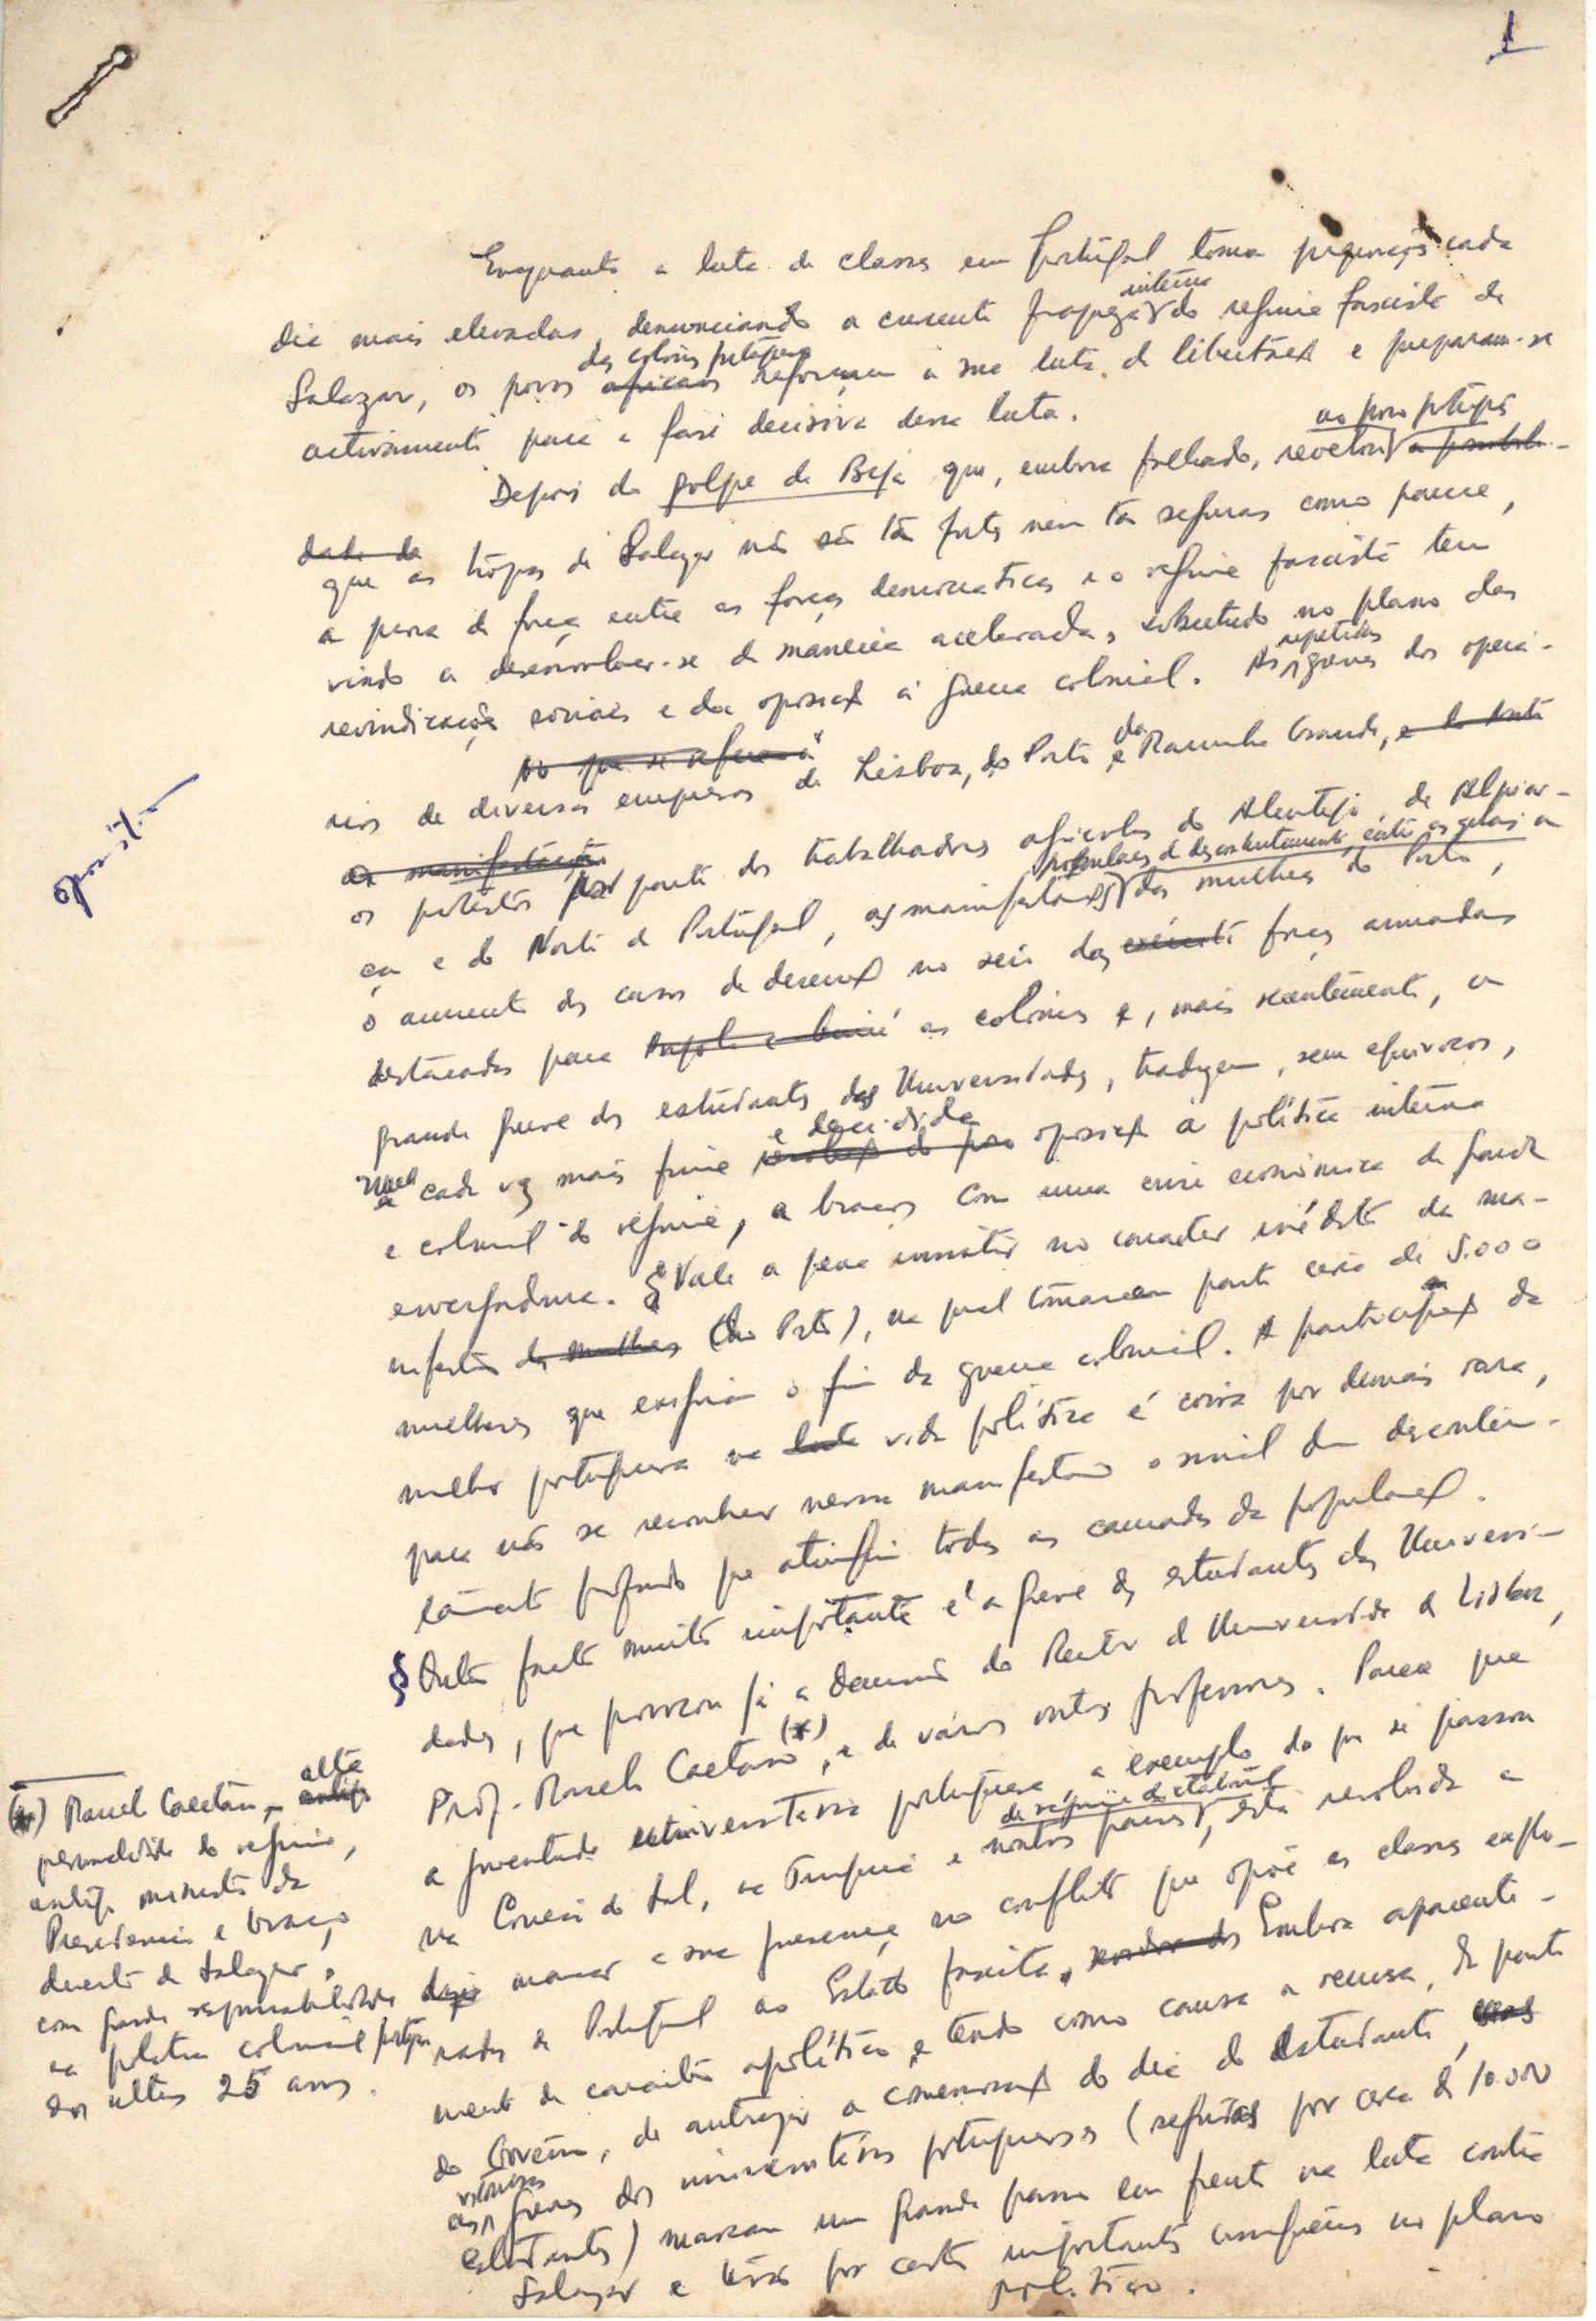 1
Enquanto a luta de classes em Portugal toma proporções cada
dia mais elevadas, denunciando a crescente interna do regime fascista de
Salazar, os povos africanos das colónias portuguesas reforçam a sua luta de libertação e preparam-se
activamente para a fase decisiva dessa luta.
Depois do golpe de Beja que, embora falhado, revelou ao povo português a possibili-
dade da
que as tropas de Salazar não são tão fortes nem tão seguras como parece,
a prova de força entre as forças democráticas e o regime fascista tem
vindo a desenvolver-se de maneira acelerada, sobretudo no plano das
reivindicações sociais e da oposição à guerra colonial. As repetidas greves dos operá-
No que se refere à
rios de diversas empresas de Lisboa, do Porto e da Marinha Grande,
as manifestações
os protestos por parte dos trabalhadores agrícolas do Alentejo, de Alpiar-
ça e do Norte de Portugal, as manifestações populares de descontentamento, entre as quais a das mulheres do Porto,
o aumento dos casos de deserção no seio das exército forças armadas
destacadas para Angola e Guiné as colónias e, mais recentemente, a
grande greve dos estudantes das Universidades, traduzem, sem equívocos,
uma cada vez mais firme e decidida oposição à política interna
e colonial do regime, a braços com uma crise económica de grande
envergadura. § Vale a pena insistir no caracter inédito da ma-
nifestação das mulheres (do Porto), na qual tomaram parte cerca de 5.000
mulheres que exigiam o fim da guerra colonial. A participação da
mulher portuguesa na luta vida política é coisa por demais rara,
para não se reconhecer nessa manifestação o sinal de desconten-
tamento profundo que atingiu todas as camadas da população.
§ Outro facto muito importante é a greve dos estudantes das Universi-
dades, que provocou já a demissão do Reitor da Universidade de Lisboa,
Prof. Marcelo Caetano (*), e de vários outros professores. Parece que
a juventude universitária portuguesa, a exemplo do que se passou
na Coreia do Sul, na Turquia e noutros países de regime ditatorial, está resolvida a
marcar a sua presença no conflito que opõe as classes explo-
radas de Portugal ao Estado fascista. Embora aparente-
mente de caracter apolítico e tendo como causa a recusa, da parte
do Governo, de autorizar a comemoração do dia do Estudante,
as vitoriosas greves dos universitários portugueses (seguidas por cerca de 10.000
estudantes) marcam um grande passo em frente na luta contra
Salazar e terão por certo importantes consequências no plano
político.
oposição
(*) Marcelo Caetano, antigo alta
personalidade do regime,
antigo ministro da
Presidência e braço
direito de Salazar,
com grande responsabilidade
na política colonial portuguesa
dos últimos 25 anos.